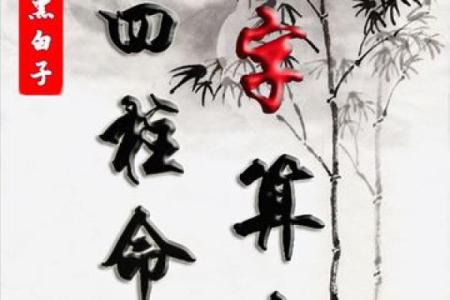 字算
四柱命
黑白子